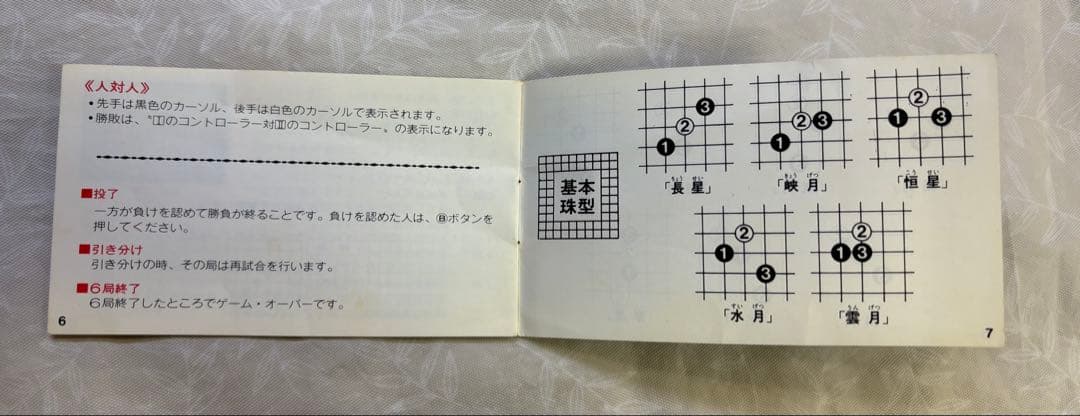 《人対人》
・先手は黒色のカーソル、後手は白色のカーソルで表示されます。
・勝敗は、〝Ⅰのコントローラー対Ⅱのコントローラー〟の表示になります。
■投了
一方が負けを認めて勝負が終ることです。負けを認めた人は、Ⓑボタンを
押してください。
■引き分け
引き分けの時、その局は再試合を行います。
■6局終了
6局終了したところでゲーム・オーバーです。
6
基本
珠型
❶②❸
ちょう せい
「長星」
❶②❸
きょう げつ
「峡月」
❶②❸
こう せい
「恒星」
❶②❸
すい げつ
「水月」
❶②❸
うん げつ
「雲月」
7